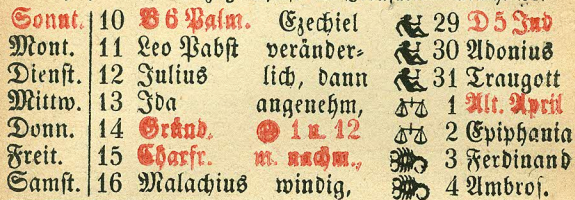 Sonnt. 10 B 6 Palm. Ezechiel 29 D 5 Jud
Mont. 11 Leo Pabst veränder- 30 Adonius
Dienst. 12 Julius lich, dann 31 Traugott
Mittw. 13 Ida angenehm, 1 Alt. April
Donn. 14 Gründ. 1 u. 12 2 Epiphania
Freit. 15 Charfr. m. nachm., 3 Ferdinand
Samst. 16 Malachius windig, 4 Ambros.